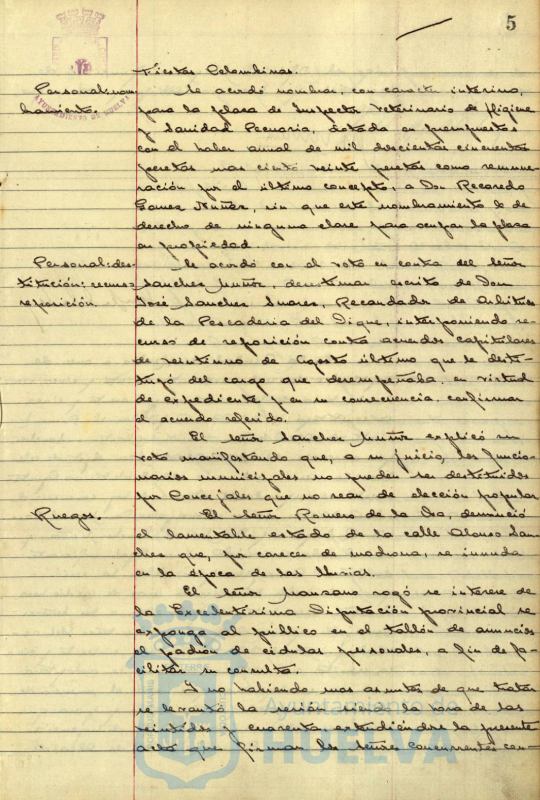 5
Fiestas Colombinas.
Personal: nom-
bramiento.
Se acordó nombrar, con carácter interino,
para la plaza de Inspector Veterinario de Higiene
y Sanidad Pecuaria, dotada en presupuestos
con el haber anual de mil doscientas cincuenta
pesetas mas ciento veinte pesetas como remune-
ración por el último concepto, a Don Recaredo
Gomez Nuñez, sin que este nombramiento le de
derecho de ninguna clase para ocupar la plaza
en propiedad.
Personal: des-
titución: recurso
reposición.
Se acordó con el voto en contra del Señor
Sanchez Muñoz, desestimar escrito de Don
José Sanchez Suarez, Recaudador de Arbitrios
de la Pescaderia del Dique, interponiendo re-
curso de reposición contra acuerdos capitulares
de veintiuno de Agosto último que le desti-
tuyó del cargo que desempeñaba, en virtud
de expediente y en su consecuencia, confirmar
el acuerdo referido.
El Señor Sanchez Muñoz explicó su
voto manifestando que, a su juicio, los funcio-
narios municipales no pueden ser destituidos
por Concejales que no sean de elección popular
Ruegos.
El Señor Romero de la denunció
el lamentable estado de la calle Alonso San-
chez que, por carecer de madrona, se inunda
en la época de las lluvias.
El Señor Manzano rogó se interese de
la Excelentísima Diputación provincial se
exponga al público en el tablón de anuncios
el padrón de cédulas personales, a fin de fa-
cilitar su consulta.
Y no habiendo mas asuntos de que tratar
se levantó la sesión siendo la hora de las
veintidos y cuarenta, extendiéndose la presente
acta que firman los Señores concurrentes con-
AYUNTAMIENTO DE HUELVA
Ayuntamiento de
HUELVA